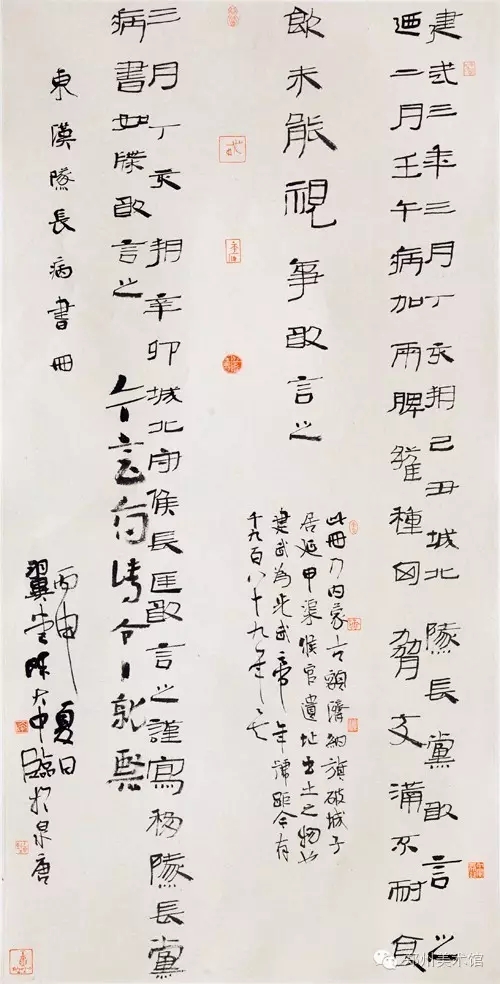 建武三年三月丁亥朔己丑城北隊長黨敢言之
迺二月壬午病加兩脾雍種匈脅支滿不耐食
飲未能視事敢言之
此冊乃內蒙古額濟納旗破城子
居延甲渠候官遺址出土之物也
建武為光武帝年號距今有
千九百八十九年
三月丁亥朔辛卯城北守候長匡敢言之謹寫移隊長黨
病書如牒敢言之 今言府請令就醫
東漢隊長病書冊
丙申夏日
翼堂陈大中臨於泉唐
州美术馆